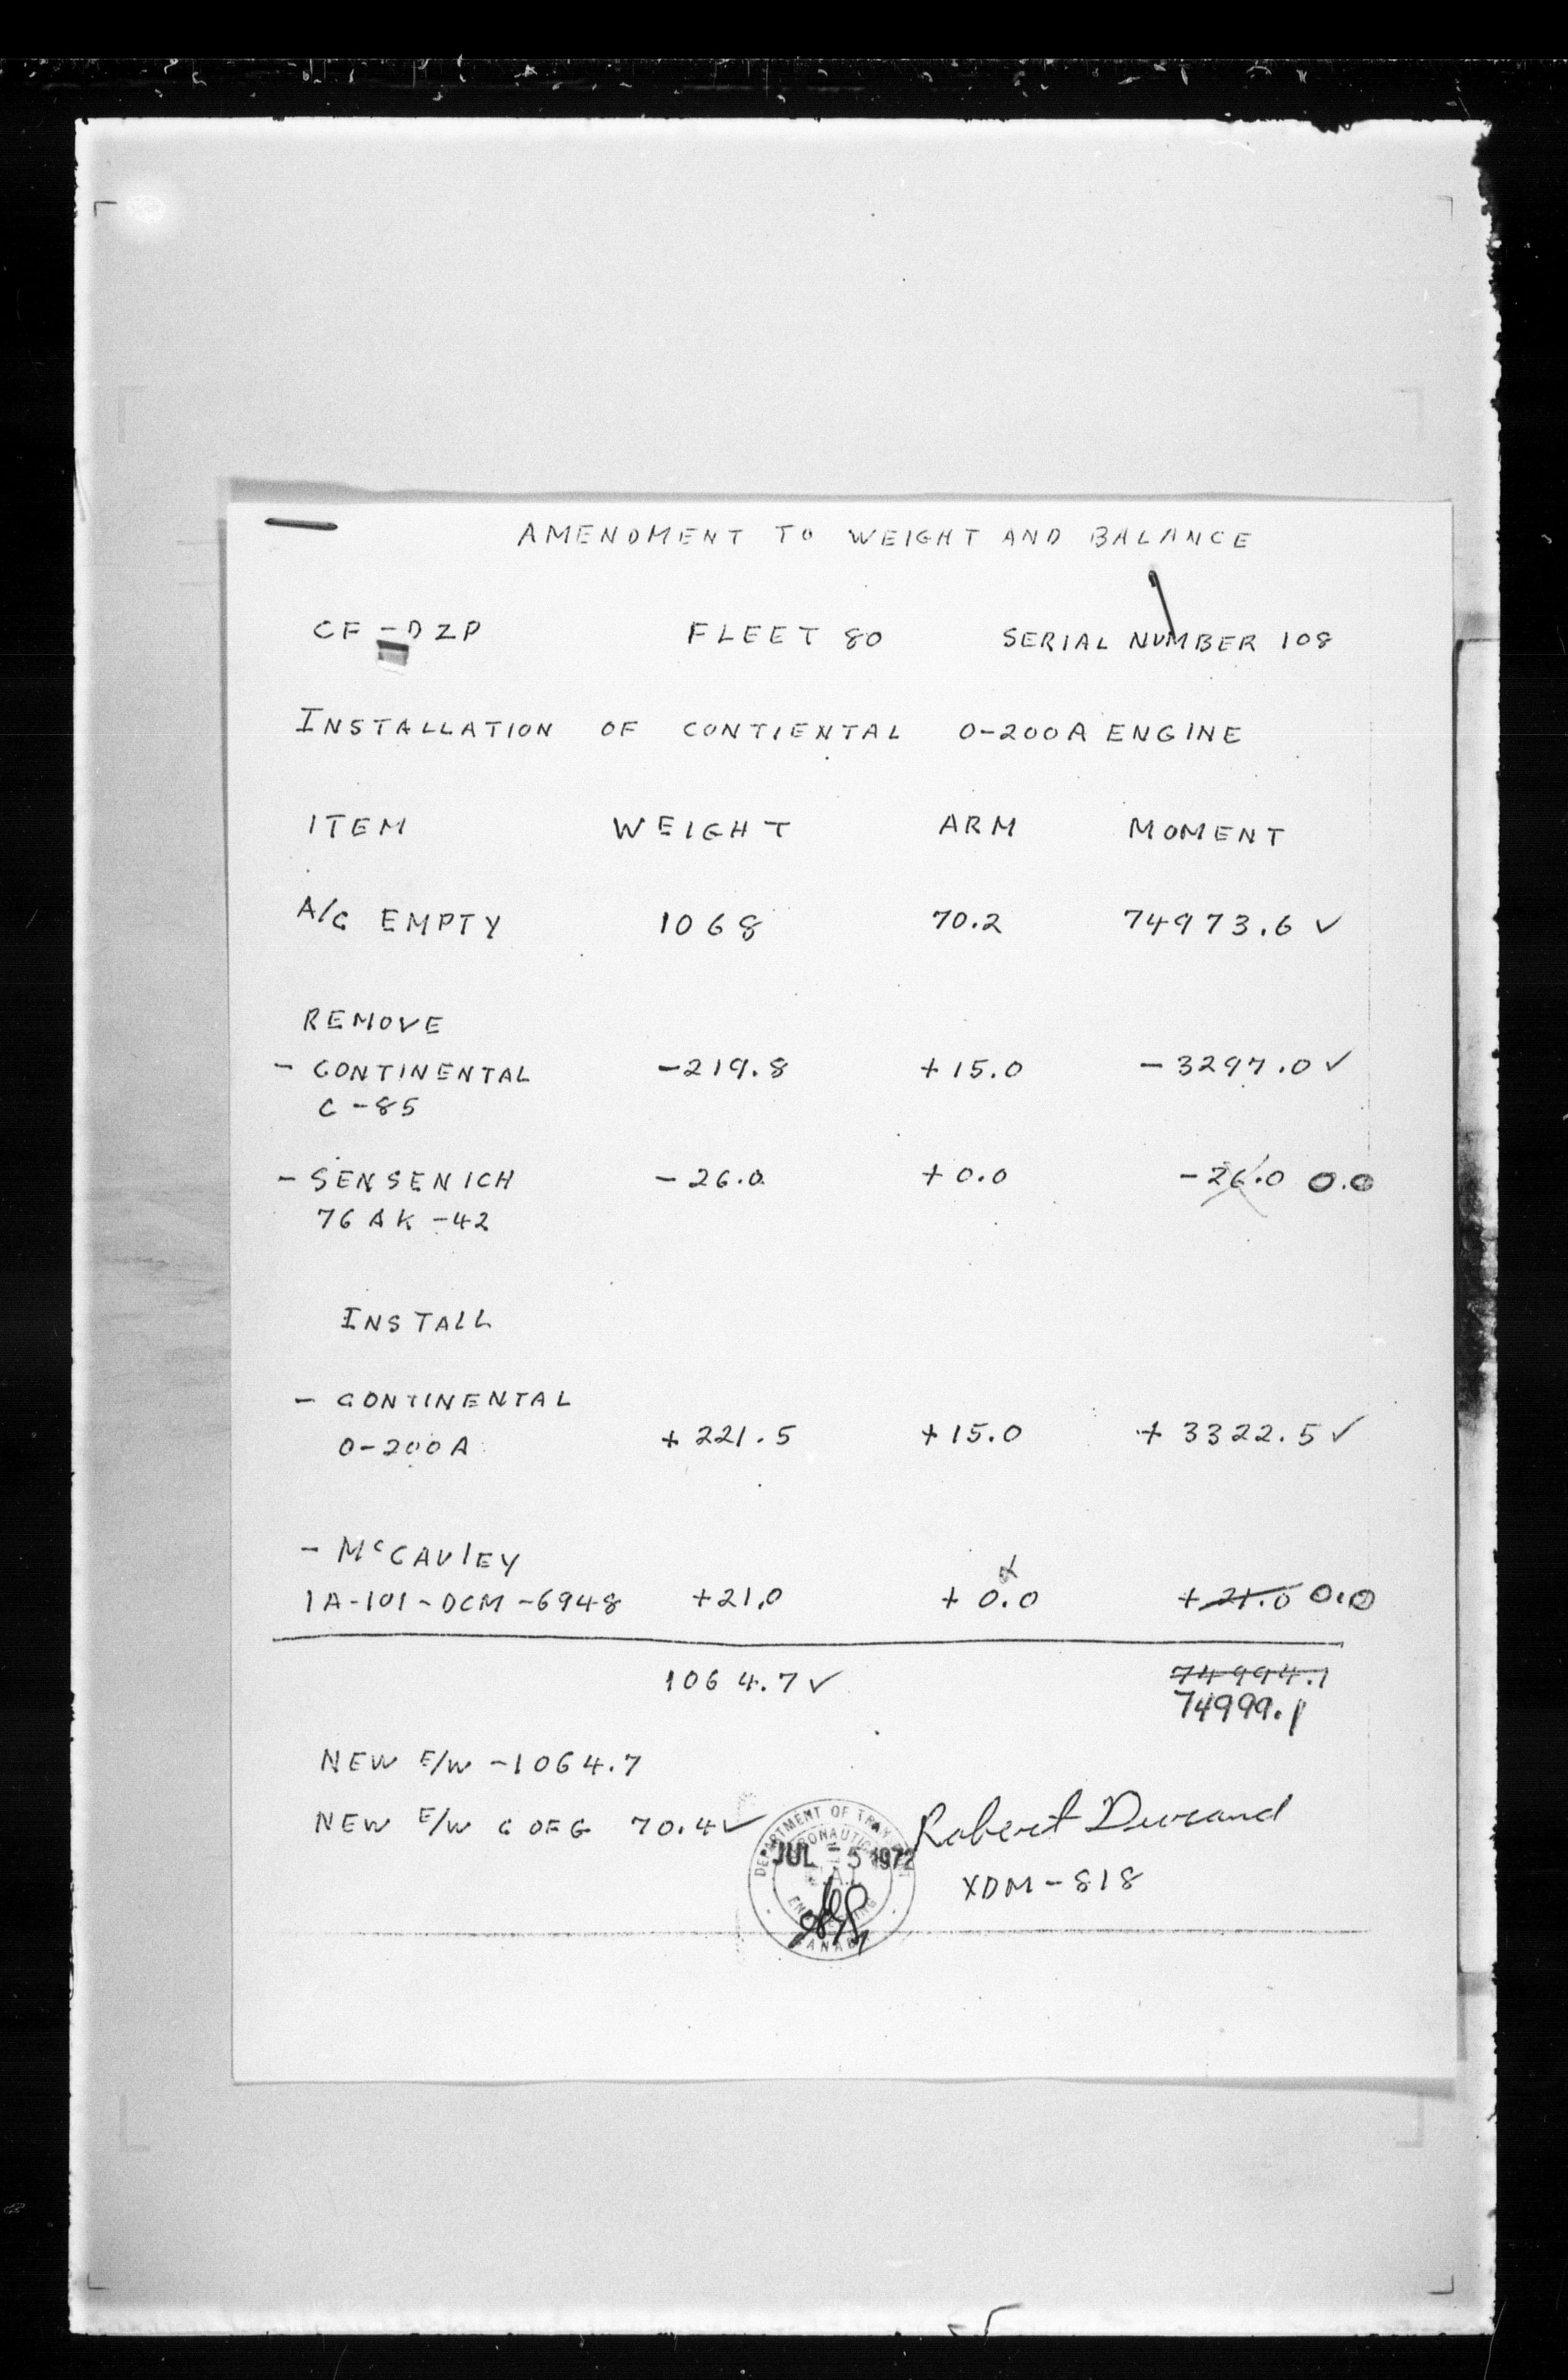 AMENDMENT TO WEIGHT AND BALANCE
CF-DZP FLEET 80 SERIAL NUMBER 108
INSTALLATION OF CONTIENTAL O-200A ENGINE
ITEM WEIGHT ARM MOMENT
A/C EMPTY 1068 70.2 74973.6 ✓
REMOVE
- CONTINENTAL -219.8 +15.0 -3297.0 ✓
C-85
- SENSENICH -26.0 +0.0 -26.0 0.0
76AK-42
INSTALL
- CONTINENTAL
O-200A +221.5 +15.0 +3322.5 ✓
- McCAULEY
1A-101-DCM-6948 +21.0 +0.0 +21.0 0.0
1064.7 ✓ 74994.1
74999.1
NEW E/W -1064.7
NEW E/W C OF G 70.4 ✓
Robert Durand
XDM-818
DEPARTMENT OF
JUL -5 1972
CANADA